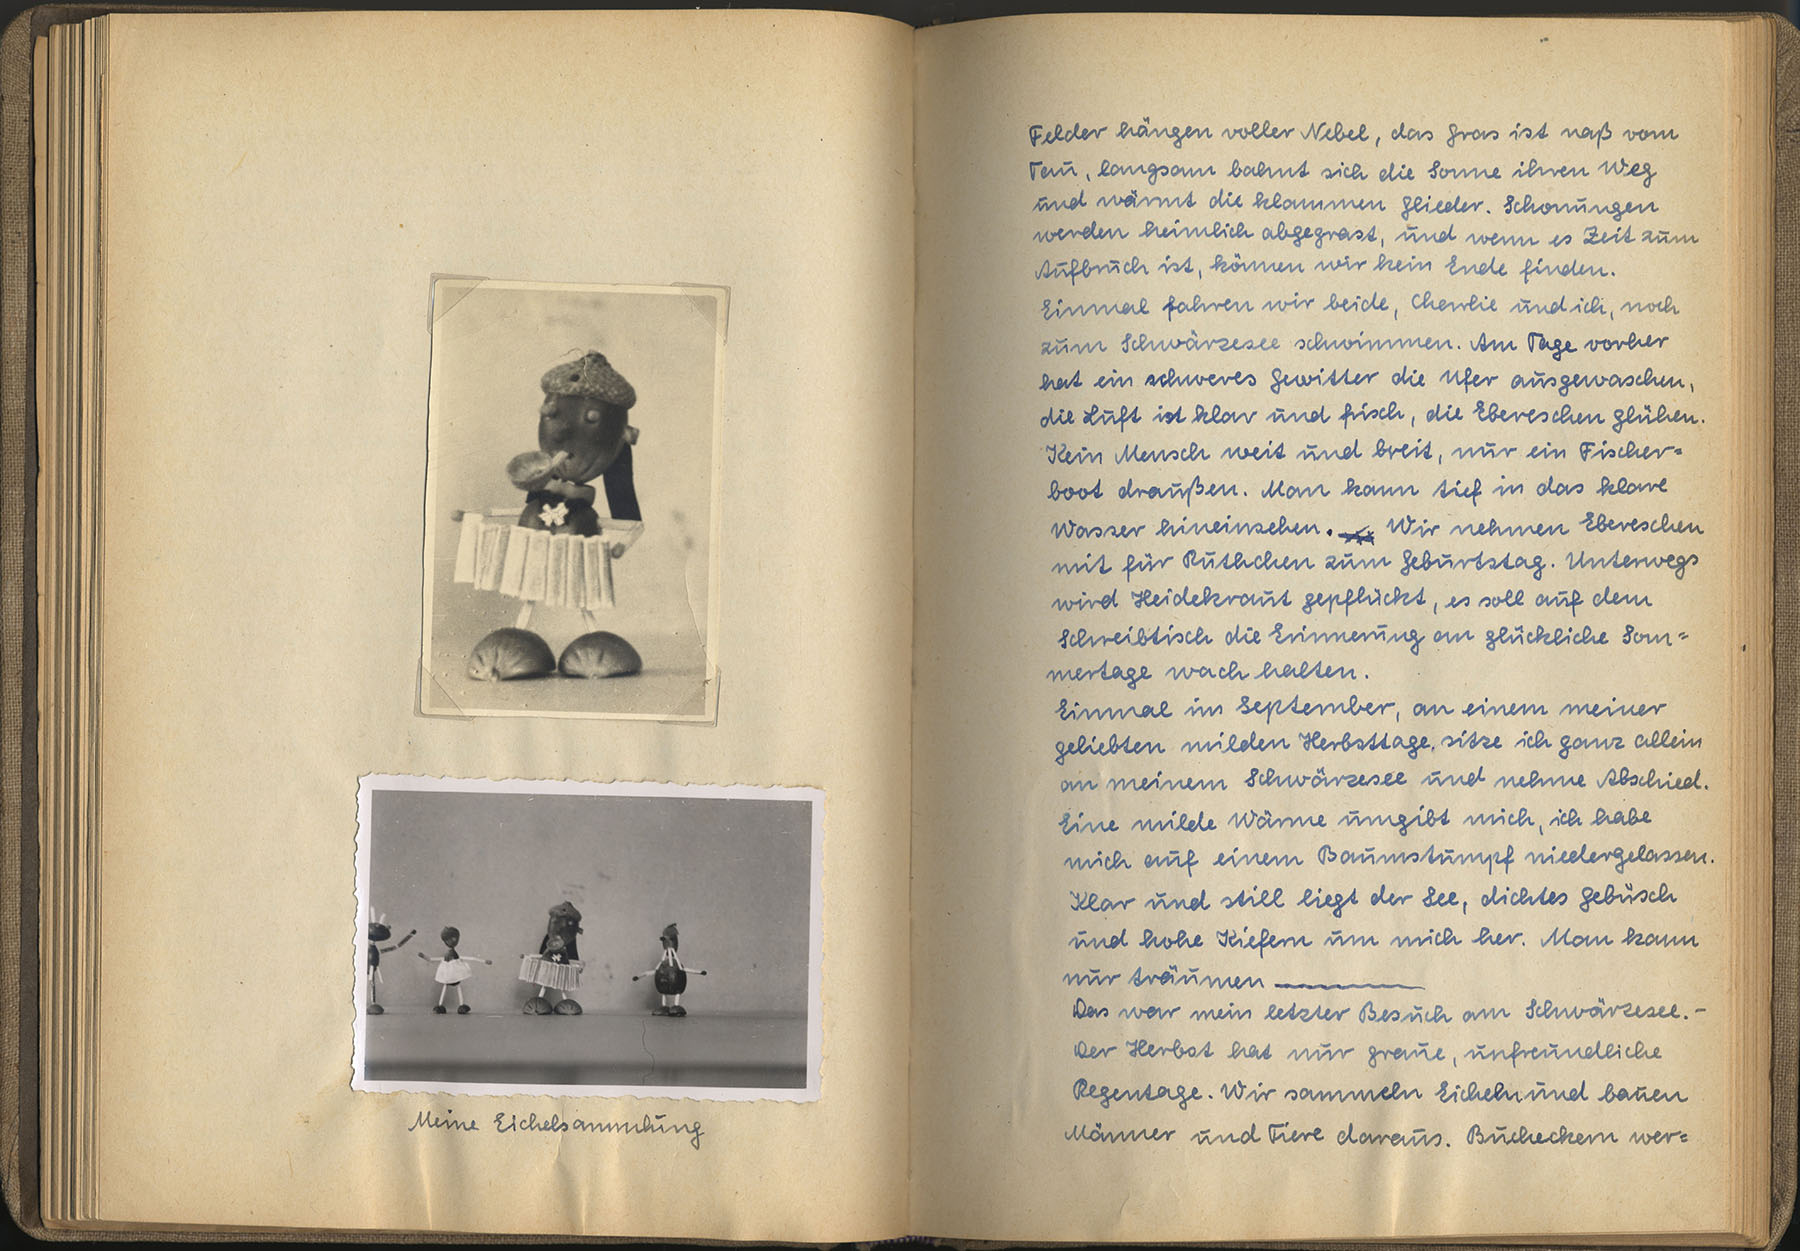 Meine Eichelsammlung
Felder hängen voller Nebel, das Gras ist naß vom
Tau, langsam bahnt sich die Sonne ihren Weg
und wärmt die klammen Glieder. Schonungen
werden heimlich abgegrast, und wenn es Zeit zum
Aufbruch ist, können wir kein Ende finden.
Einmal fahren wir beide, Cherlie und ich, noch
zum Schwärzesee schwimmen. Am Tage vorher
hat ein schweres Gewitter die Ufer ausgewaschen,
die Luft ist klar und frisch, die Ebereschen glühen.
Kein Mensch weit und breit, nur ein Fischer=
boot draußen. Man kann tief in das klare
Wasser hineinsehen. Wir nehmen Ebereschen
mit für Ruthchen zum Geburtstag. Unterwegs
wird Heidekraut gepflückt, es soll auf dem
Schreibtisch die Erinnerung an glückliche Som=
mertage wach halten.
Einmal im September, an einem meiner
geliebten milden Herbsttage, sitze ich ganz allein
an meinem Schwärzesee und nehme Abschied.
Eine milde Wärme umgibt mich, ich habe
mich auf einem Baumstumpf niedergelassen.
Klar und still liegt der See, dichtes Gebüsch
und hohe Kiefern um mich her. Man kann
nur träumen ———
Das war mein letzter Besuch am Schwärzesee. –
Der Herbst hat nur graue, unfreundliche
Regentage. Wir sammeln Eicheln und bauen
Männer und Tiere daraus. Bucheckern wer=